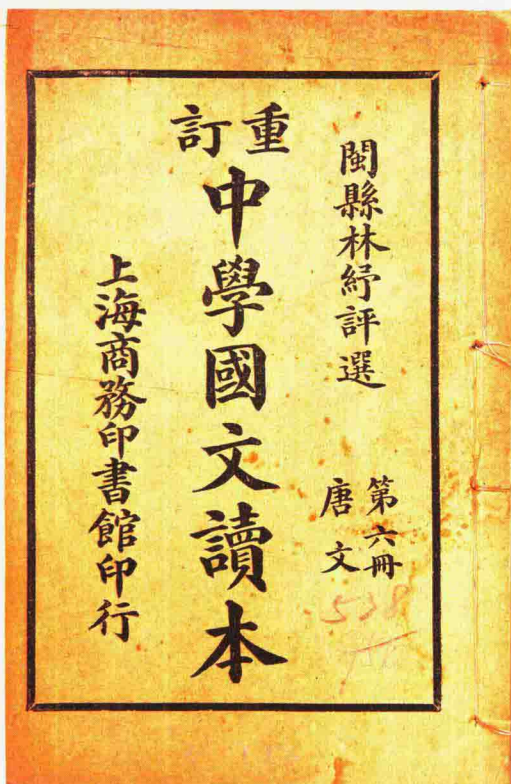 閩縣林紓評選
第六冊
唐文
重訂
中學國文讀本
上海商務印書館印行
538